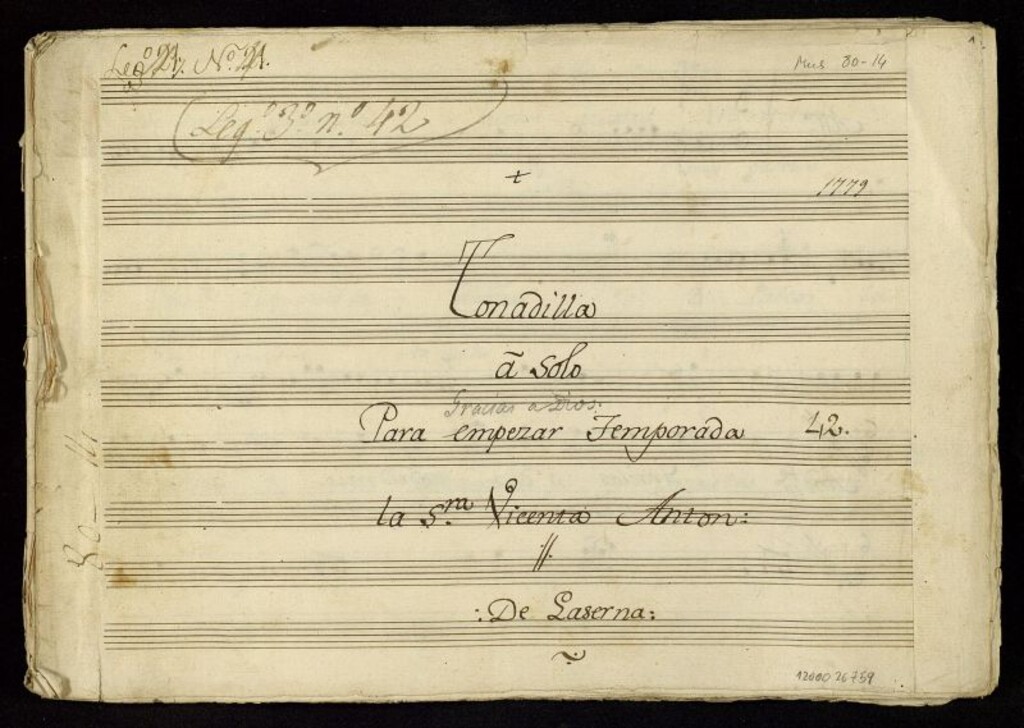 Leg.º 21. N.º 21.
Mus 80-14
(Leg.º 3.º n.º 42
+
1779
Tonadilla
a solo
Gracias a Dios.
Para empezar Temporada 42.
la S.ra Vicenta Anton:
//.
:De Laserna:
80-14
1200026759